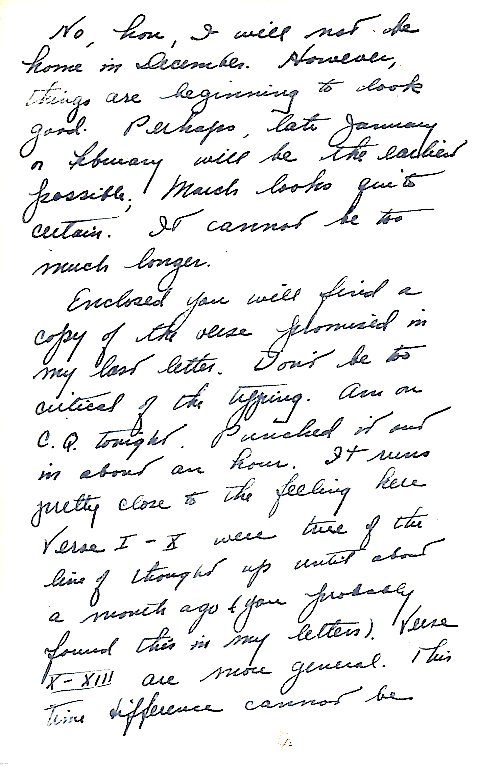 No, hon, I will not be
home in December. However,
things are beginning to look
good. Perhaps, late January
or February will be the earliest
possible; March looks quite
certain. It cannot be too
much longer.
Enclosed you will find a
copy of the verse promised in
my last letter. Don't be too
critical of the typing. Am on
C.Q. tonight. Punched it out
in about an hour. It runs
pretty close to the feeling here
Verse I - X were true of the
line of thought up until about
a month ago (you probably
found this in my letters). Verse
X - XIII are more general. This
time difference cannot be